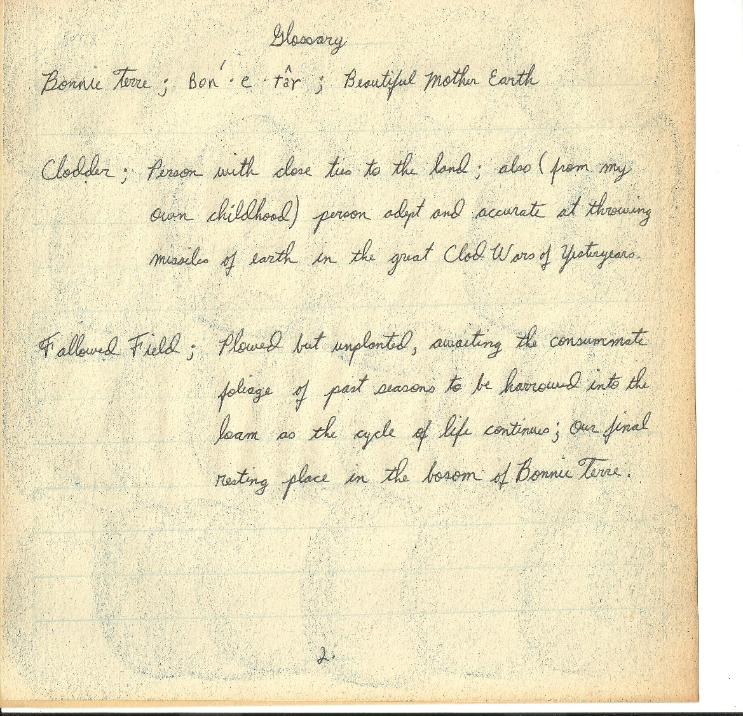 Glossary
Bonnie Terre ; Bon´· e · târ ; Beautiful Mother Earth
Clodder ; Person with close ties to the land ; also ( from my
own childhood) person adept and accurate at throwing
missiles of earth in the great Clod Wars of Yesteryears.
Fallowed Field ; Plowed but unplanted, awaiting the consummate
foliage of past seasons to be harrowed into the
loam as the cycle of life continues; our final
resting place in the bosom of Bonnie Terre.
2.